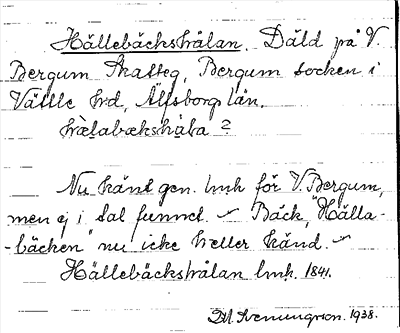 Hällebäckshålan. Däld på V.
Bergum Skatteg, Bergum socken i
Vättle hd, Älfsborgs län.
hælabækshåla ?
Nu känt gen. lmk för V. Bergum,
men ej i tal funnet. - Bäck, "Hälla-
-bäcken" nu icke heller känd. -
Hällebäckshålan lmk. 1841.
Svenungson. 1938.